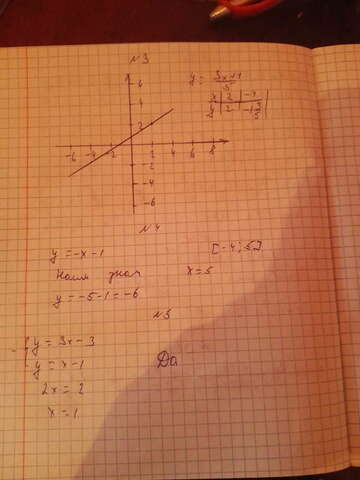 N3
y = 3x+4
5
x | 2 | -4
y | 2
6
4
2
-6 -4 -2 2 4 6 8
2
-4
-6
N4
y = -x - 1 [-4; 5].
Наим знач x = 5
y = -5-1 = -6
N5
y = 3x - 3
y = x - 1 Да
2x = 2
x = 1